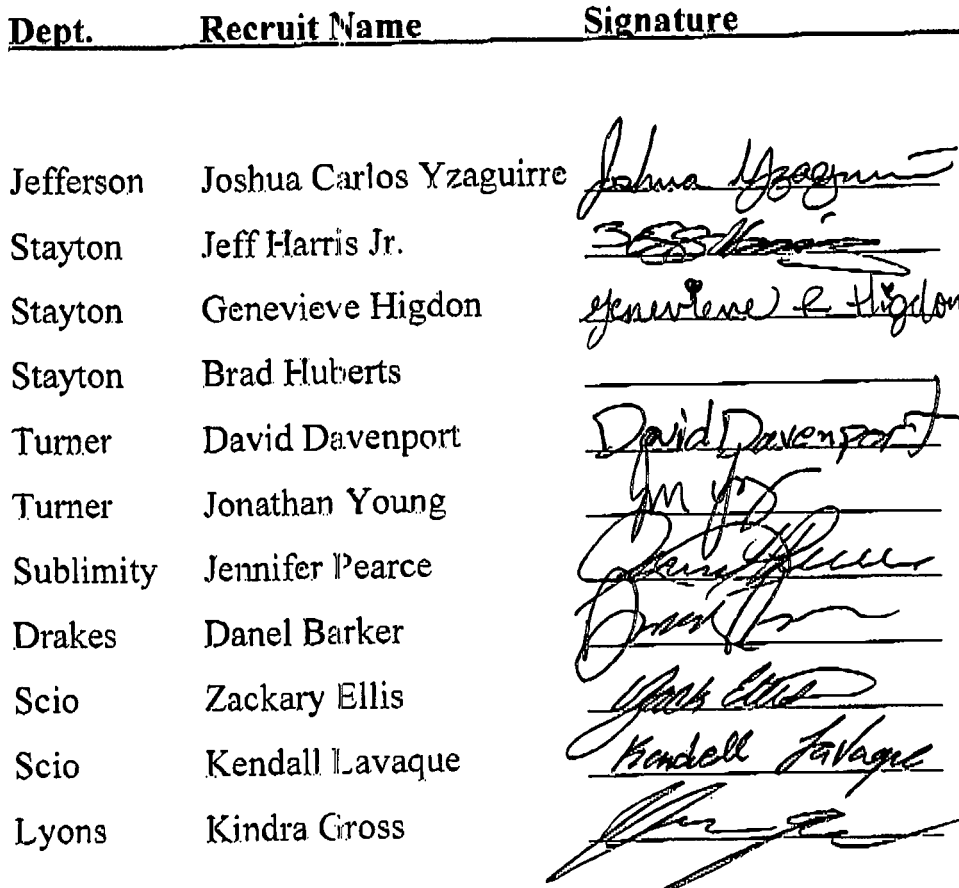 Dept. Recruit Name Signature
Jefferson Joshua Carlos Yzaguirre Joshua Yzaguirre
Stayton Jeff Harris Jr.
Stayton Genevieve Higdon Genevieve R Higdon
Stayton Brad Huberts
Turner David Davenport David Davenport
Turner Jonathan Young
Sublimity Jennifer Pearce
Drakes Danel Barker
Scio Zackary Ellis Zack Ellis
Scio Kendall Lavaque Kendell LaVaque
Lyons Kindra Gross